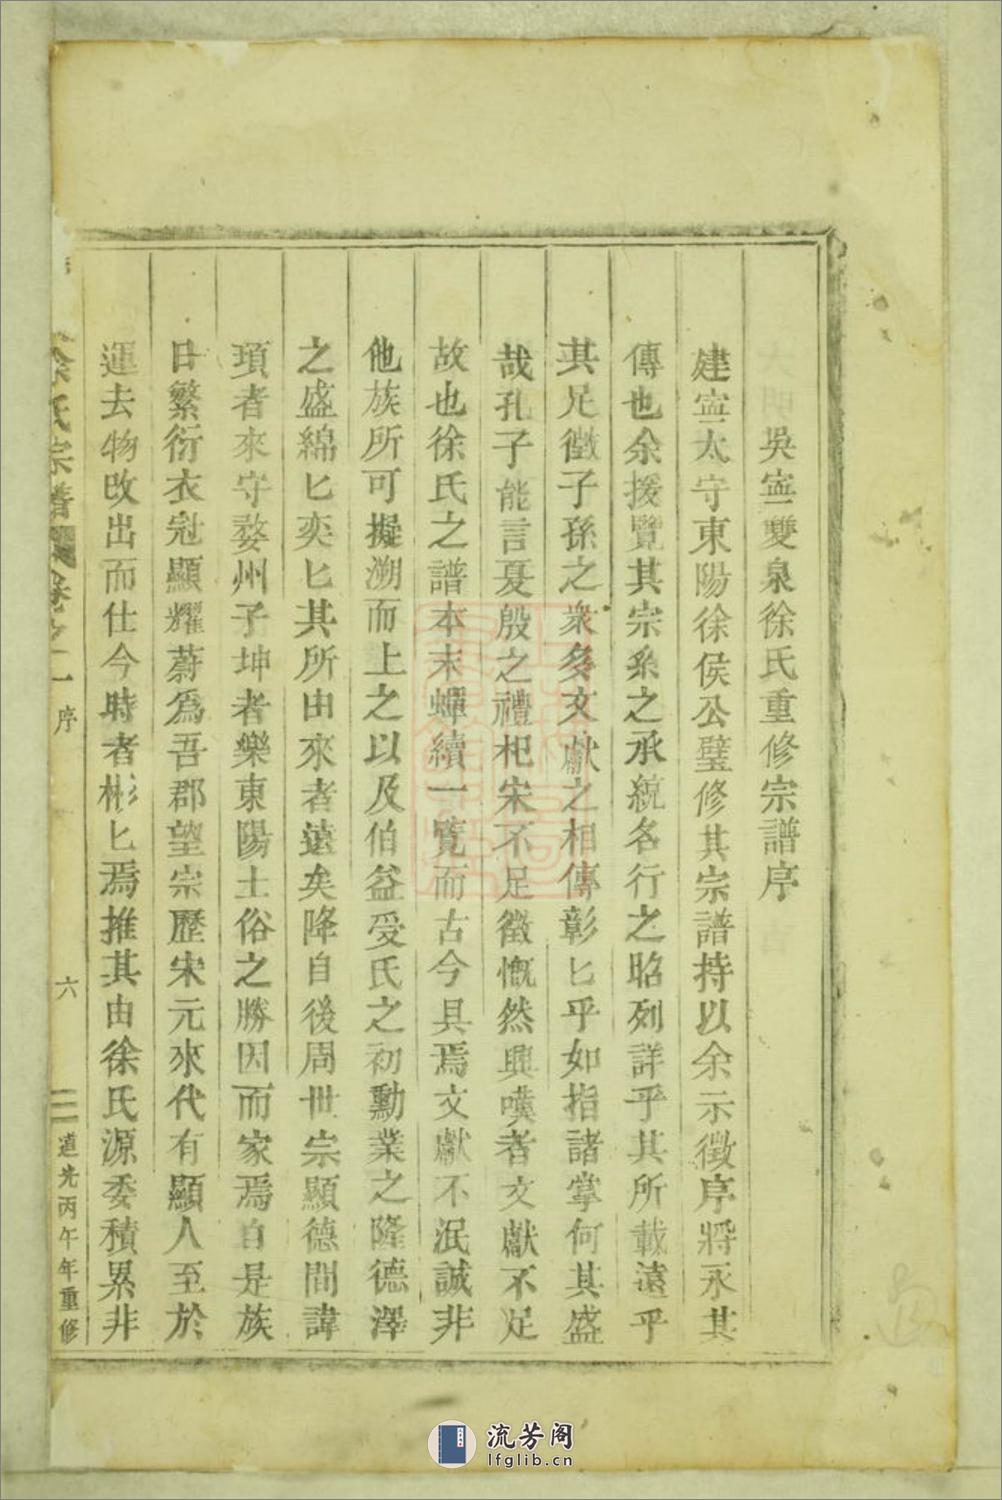 吳寧雙泉徐氏重修宗譜序
建寧太守東陽徐侯公璧修其宗譜持以余示徵序將永其
傳也余援覽其宗系之承統各行之昭列詳乎其所載遠乎
其足徵子孫之衆多文獻之相傳彰匕乎如指諸掌何其盛
哉孔子能言夏殷之禮杞宋不足徵慨然興嘆者文獻不足
故也徐氏之譜本末蟬續一覽而古今具焉文獻不泯誠非
他族所可擬溯而上之以及伯益受氏之初勳業之隆德澤
之盛綿匕奕匕其所由來者遠矣降自後周世宗顯德間諱
項者來守婺州子坤者樂東陽土俗之勝因而家焉自是族
日繁衍衣冠顯耀蔚爲吾郡望宗歷宋元來代有顯人至於
運去物改出而仕今時者彬匕焉推其由徐氏源委積累非
徐氏宗譜 卷之一 序 六 道光丙午年重修
流芳阁
lfglib.cn